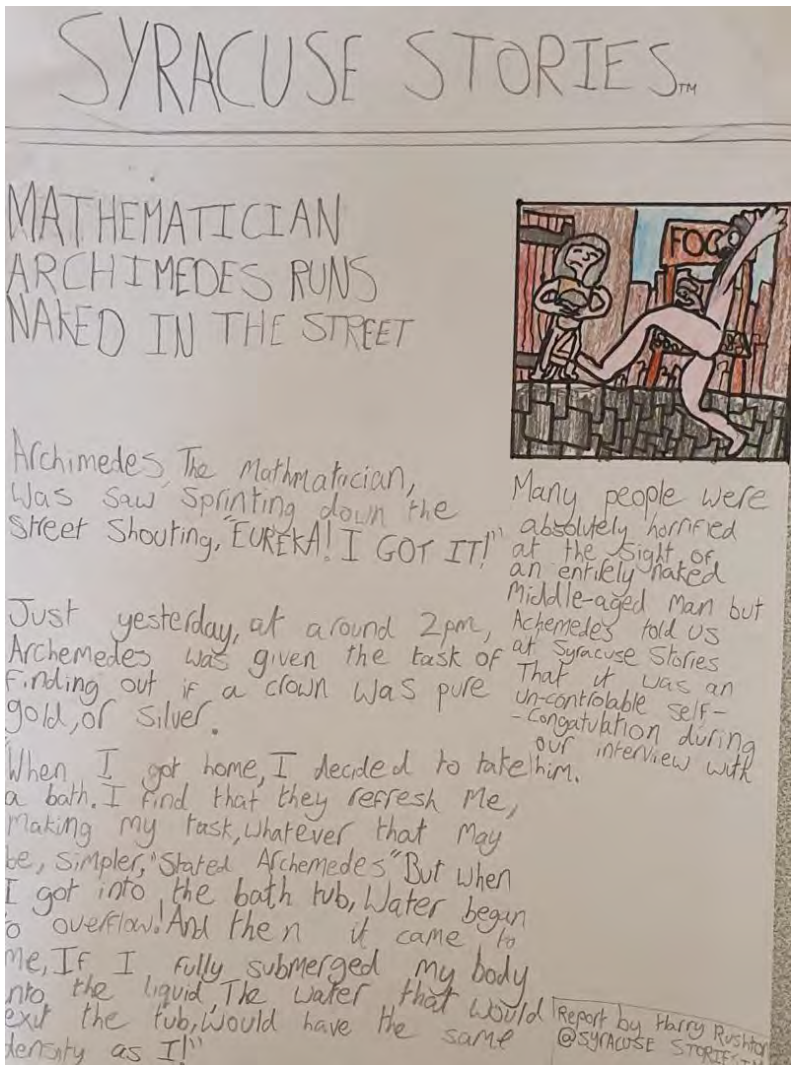 SYRACUSE STORIES™
MATHEMATICIAN
ARCHIMEDES RUNS
NAKED IN THE STREET
Archimedes, The Mathmatician,
was saw sprinting down the
street shouting, "EUREKA! I GOT IT!"
Just yesterday, at around 2pm,
Archemedes was given the task of
finding out if a crown was pure
gold, or silver.
"When I got home, I decided to take
a bath. I find that they refresh me,
making my task, whatever that may
be, simpler," Stated Archemedes "But when
I got into the bath tub, water began
to overflow! And then it came to
me, If I fully submerged my body
into the liquid, The water that would
exit the tub, would have the same
density as I!"
FOO
Many people were
absolutely horrified
at the sight of
an entirely naked
middle-aged man but
Achemedes told us
at Syracuse Stories
That it was an
un-controlable self-
-congatulation during
our interview with
him.
Report by Harry Rushton
@SYRACUSE STORIES™